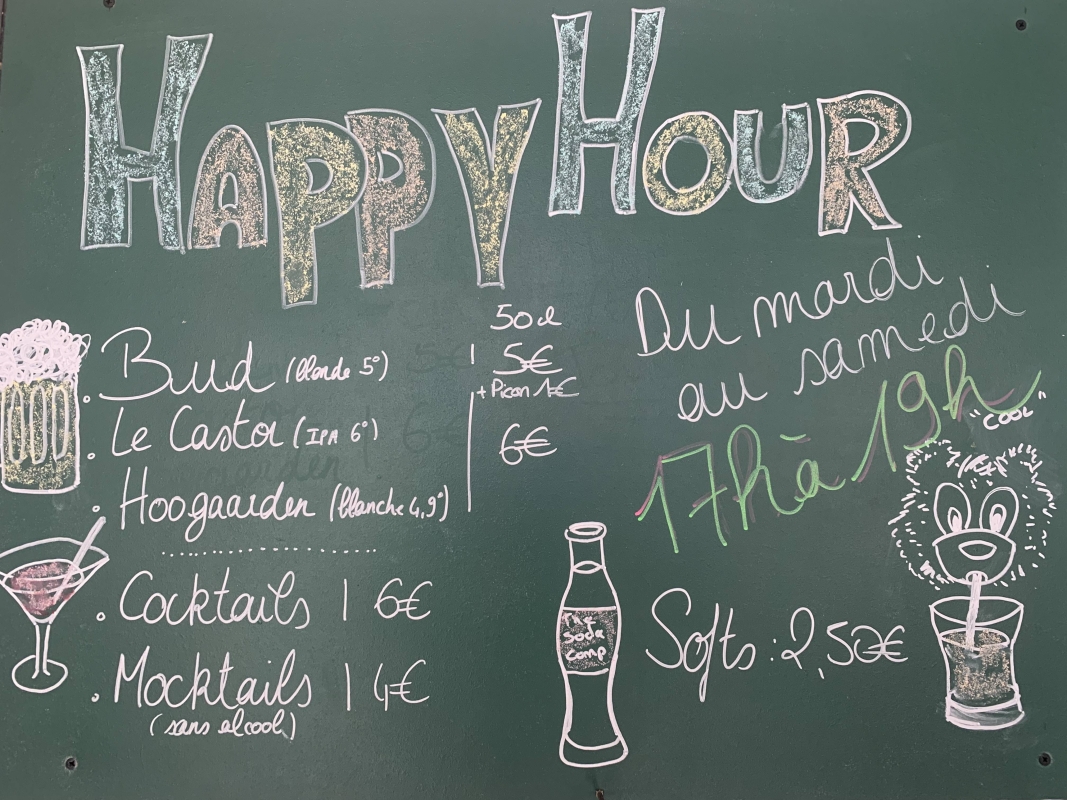 HAPPY HOUR
50cl
Bud (blonde 5°) | 5€
+ Picon 1€
Le Castor (IPA 6°)
6€
Hoogaarden (blanche 4,9°)
Cocktails | 6€
Mocktails | 4€
(sans alcool)
Du mardi
au samedi
17h à 19h
"COOL"
The
soda
comp
Softs : 2,50€